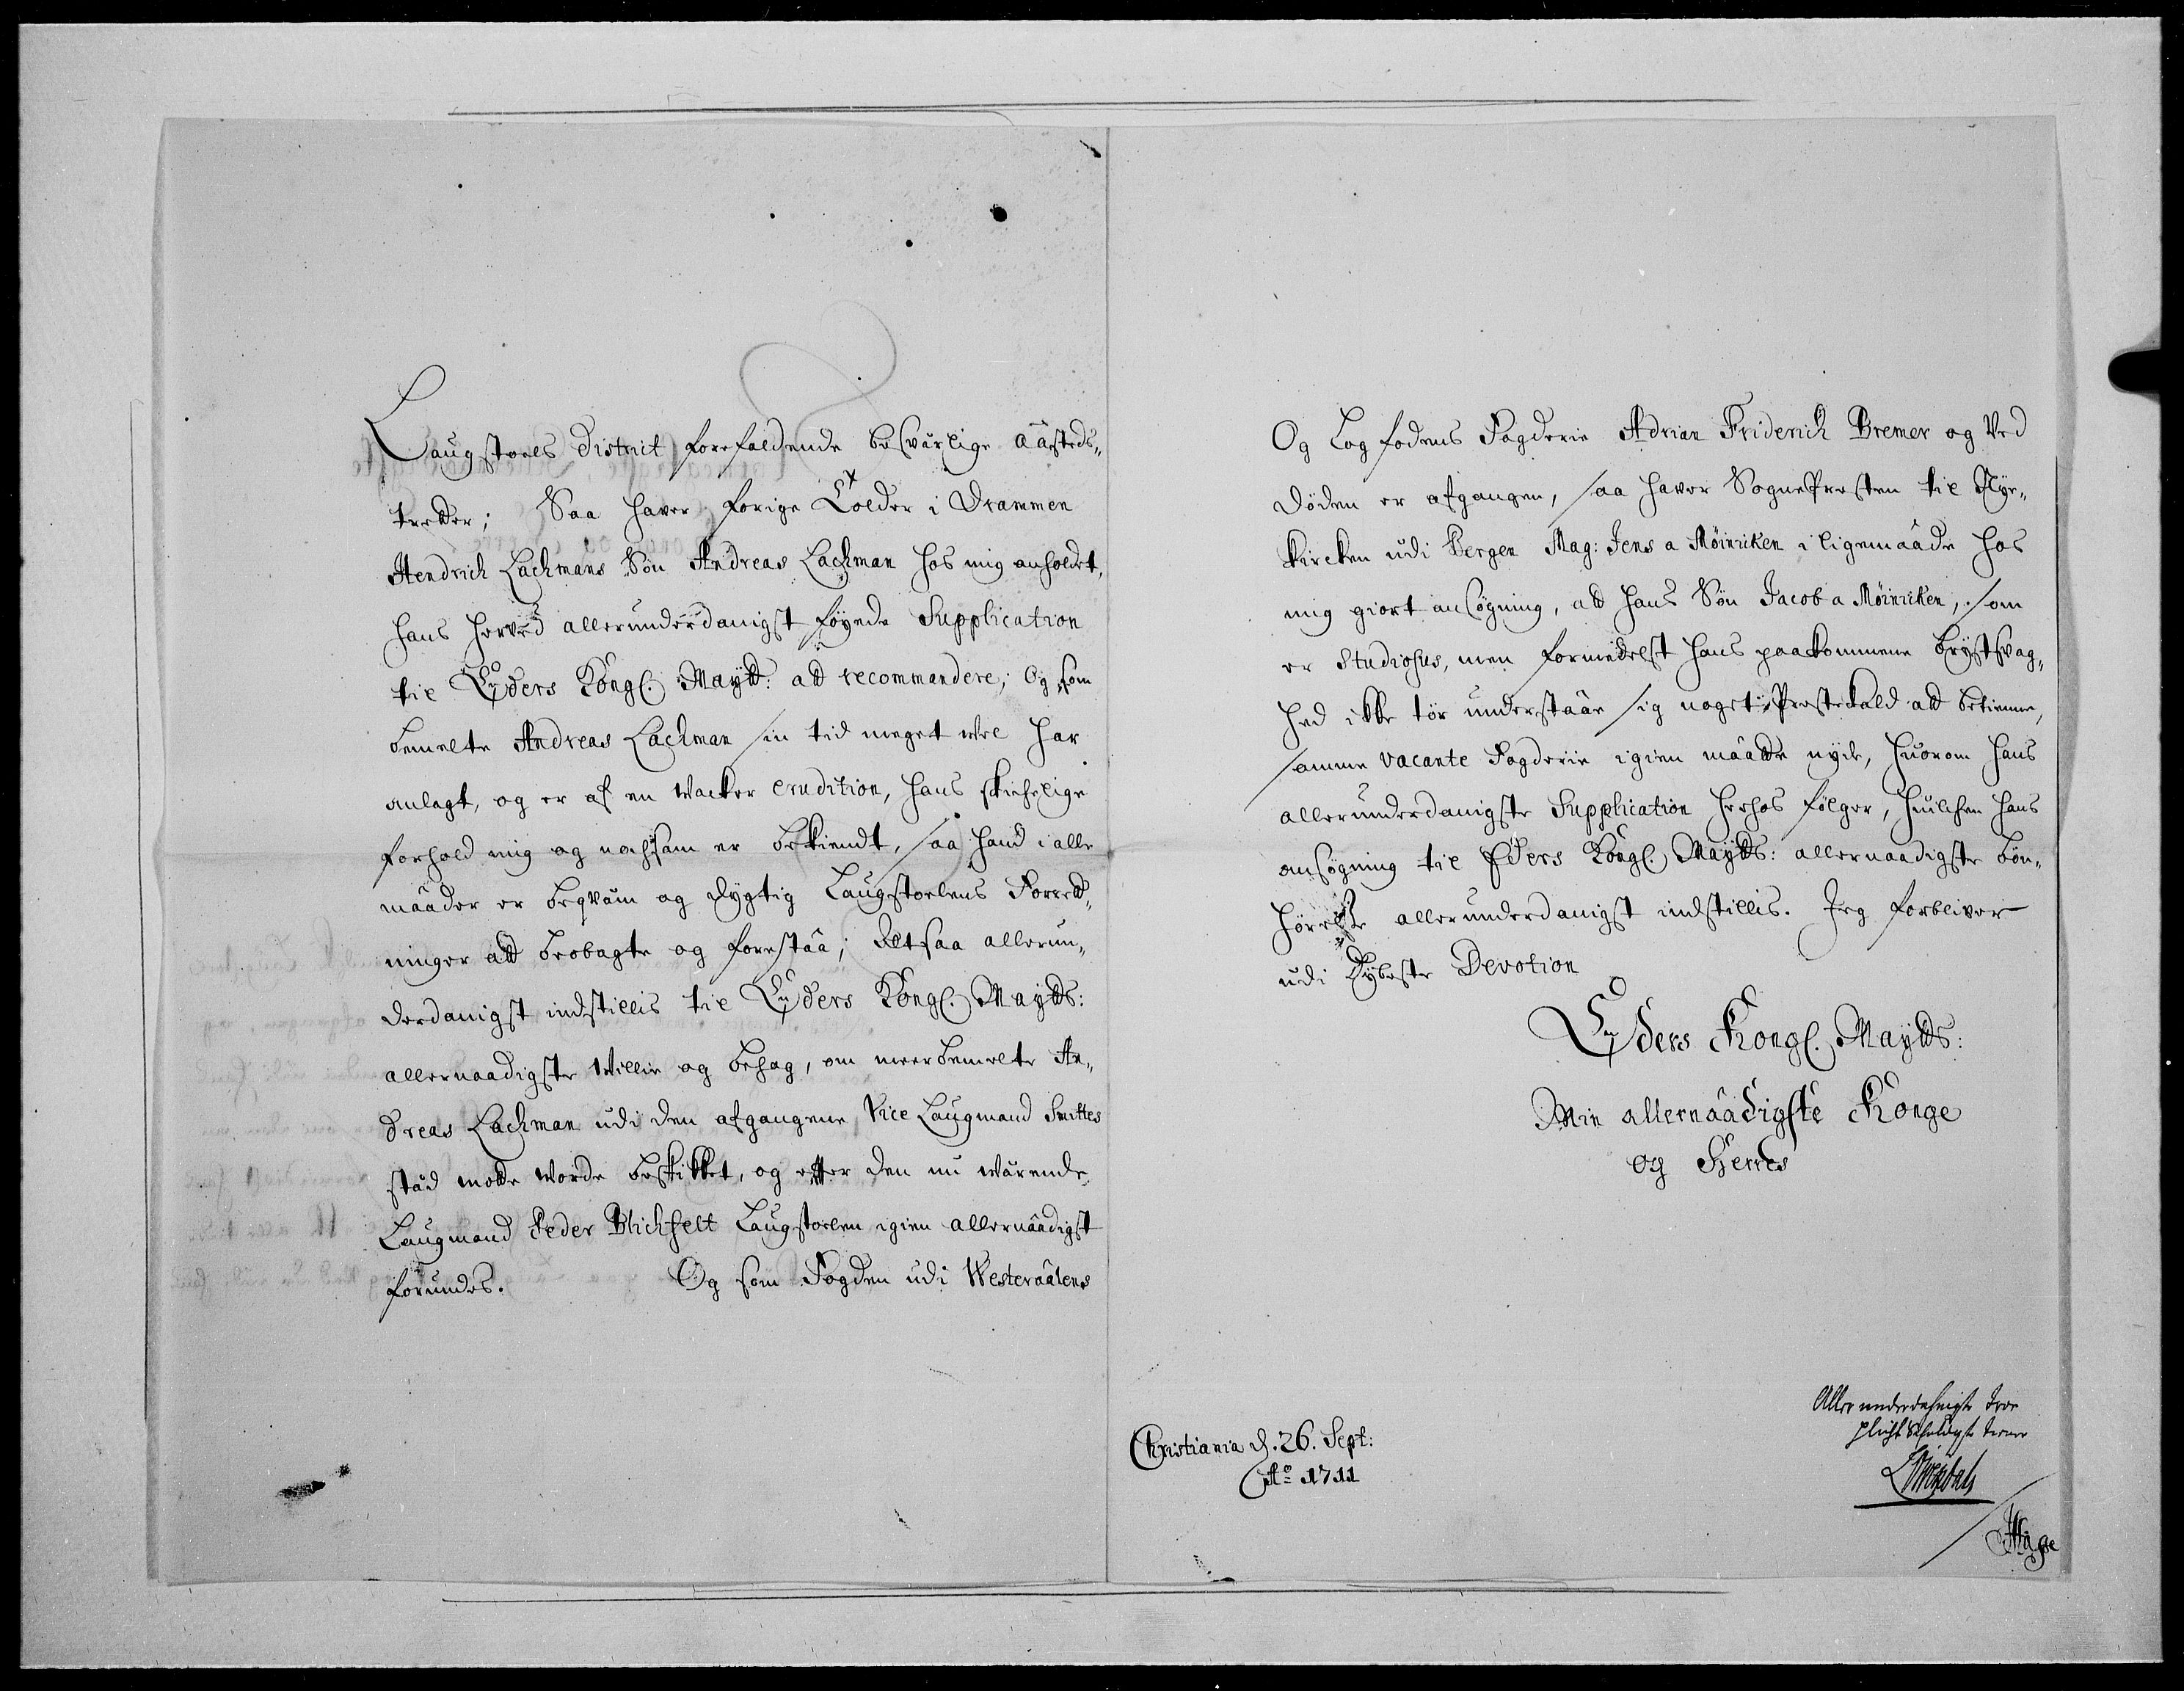 Laugstoels District forefaldende besværlige Aasteds-
tretter; Saa haver forige Tolder i Drammen
Hendrich Lachmans Søn Andreas Lachman hos mig anholdet,
hans herved allerunderdanigst føyede Supplication
til Eders Kongl. Maytt: att recommandere; Og som
bemelte Andreas Lachman sin tid meget vel har
anlagt, og er af en wacker erudition, hans skichelige
forhold mig og nochsam er bekiendt, saa hand i alle
maader er beqvæm og dygtig Laugstoelens Forrett-
ninger att beobagte og forestaa; Altsaa allerun-
derdanigst indstillis til Eders Kongl. Maytts:
allernaadigste Willie og behag, om meerbemelte An-
dreas Lachman udi den afgangene Vice Laugmand Smittes
stæd motte worde beskikket, og etter den nu wærende
Laugmand Peder Blichfelt Laugstoelen igien allernaadigst
forundes. Og som Fogden udi Westeraalens
Og Log fodens Fogderie Adrian Friderich Bremer og Ved
døden er afgangen, saa haver SognePresten til Nye-
kircken udi Bergen Mag: Jens a Møinicken i ligemaade hos
mig giort ansøgning, att hans Søn Jacob a Møinicken, som
er Studiosus, men formedelst hans paakommene brystsvag-
hed ikke tør understaae sig noget Prestekald att betiene,
samme vacante Fogderie igien maatte nyde, huorom hans
allerunderdanigste Supplication herhos følger, huilchen hans
ansøgning til Eders Kongl. Maytts: allernaadigste bøn-
hørelse allerunderdanigst indstillis. Jeg forbliver
udi dybeste Devotion
Eders Kongl. Maytts:
Min allernaadigste Konge
og Herres
Christiania d. 26. Sept:
Ao 1711
Allerunderdahnigste troe
plicht schuldigste tienere